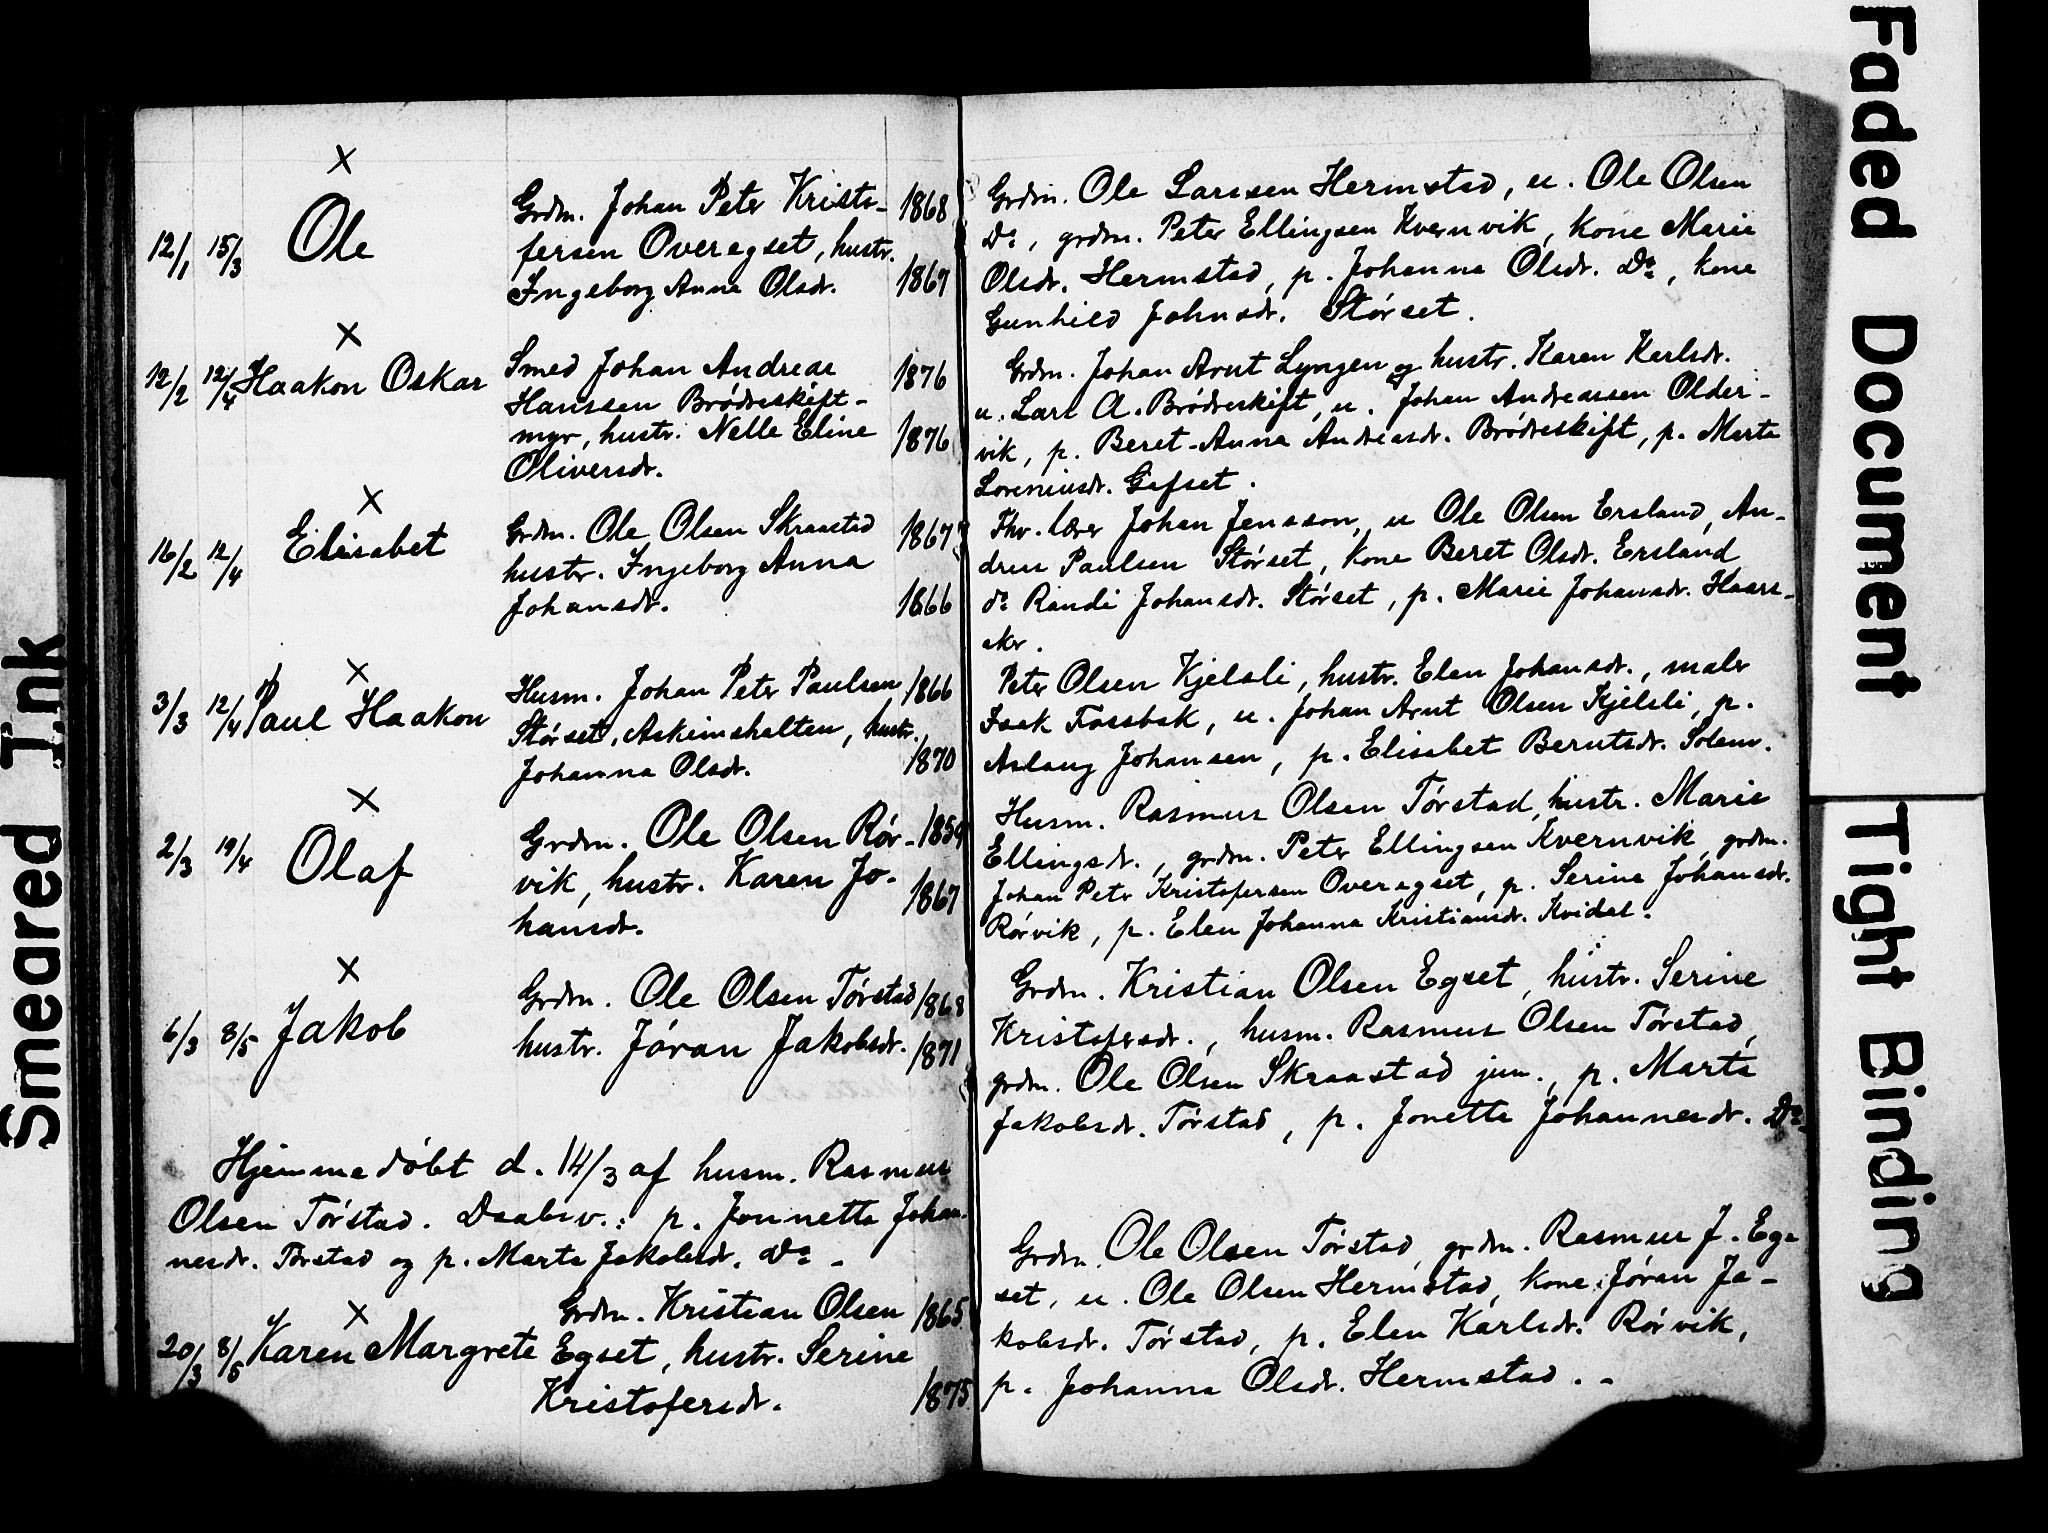 ×
12/1 15/3 Ole
Grdm. Johan Peter Kristo- 1868
fersen Overegset, hustr.
Ingeborg Anna Olsdr. 1867
×
12/2 12/4 Haakon Oskar
Smed Johan Andreas 1876
Hanssen Brødreskift-
myr, hustr. Nelle Eline 1876
Oliversdr.
×
16/2 12/4 Elisabet
Grdm. Ole Olsen Skraastad 1867
hustr. Ingeborg Anna
Johansdr. 1866
×
3/3 12/4 Paul Haakon
Husm. Johan Peter Paulsen 1866
Størset, Askeimshalten, hustr.
Johanna Olsdr. 1870
×
2/3 19/4 Olaf
Grdm. Ole Olsen Rør- 1859
vik, hustr. Karen Jo- 1867
hansdr.
×
6/3 8/5 Jakob
Grdm. Ole Olsen Tørstad 1868
hustr. Jøran Jakobsdr. 1871
Hjemmedøbt d. 14/3 af husm. Rasmus
Olsen Tørstad. Daabsv.: p. Jonnetta Johan-
nesdr. Tørstad og p. Marta Jakobsdr. Do -
×
20/3 8/5 Karen Margrete
Grdm. Kristian Olsen 1865
Egset, hustr. Serine
Kristofersdr. 1875
Grdm. Ole Larssen Hermstad, u. Ole Olsen
Do, grdm. Peter Ellingsen Kvernvik, kone Marie
Olsdr. Hermstad, p. Johanna Olsdr. Do, kone
Gunhild Johnsdr. Størset.
Grdm. Johan Arnt Lyngen og hustr. Karen Karlsdr.
u. Lars A. Brødreskift, u. Johan Andreassen Older-
vik, p. Beret-Anna Andreasdr. Brødreskift, p. Marta
Loreniusdr. Gafset.
Fhv. lærer Johan Jensson, u Ole Olsen Ersland, An-
dreas Paulsen Størset, kone Beret Olsdr. Ersland
do Randi Johansdr. Størset, p. Marie Johansdr. Haars-
aker.
Peter Olsen Kjelsli, hustr. Elen Johansdr., maler
Isak Fossbak, u. Johan Arnt Olsen Kjelsli, p.
Aslaug Johansen, p. Elisabet Berntsdr. Solem.
Husm. Rasmus Olsen Tørstad, hustr. Marie
Ellingsdr., grdm. Peter Ellingsen Kvernvik, grdm.
Johan Peter Kristofersen Overegset, p. Serine Johansdr.
Rørvik, p. Elen Johanna Kristiansdr. Kvidal.
Grdm. Kristian Olsen Egset, hustr. Serine
Kristofersdr., husm. Rasmus Olsen Tørstad,
grdm. Ole Olsen Skraastad jun., p. Marta
Jakobsdr. Tørstad, p. Jonetta Johannesdr. Do
Grdm. Ole Olsen Tørstad, grdm. Rasmus J. Eg-
set, u. Ole Olsen Hermstad, kone Jøran Ja-
kobsdr. Tørstad, p. Elen Karlsdr. Rørvik,
p. Johanna Olsdr. Hermstad. -
Smeared Ink
Faded Document
Tight Binding